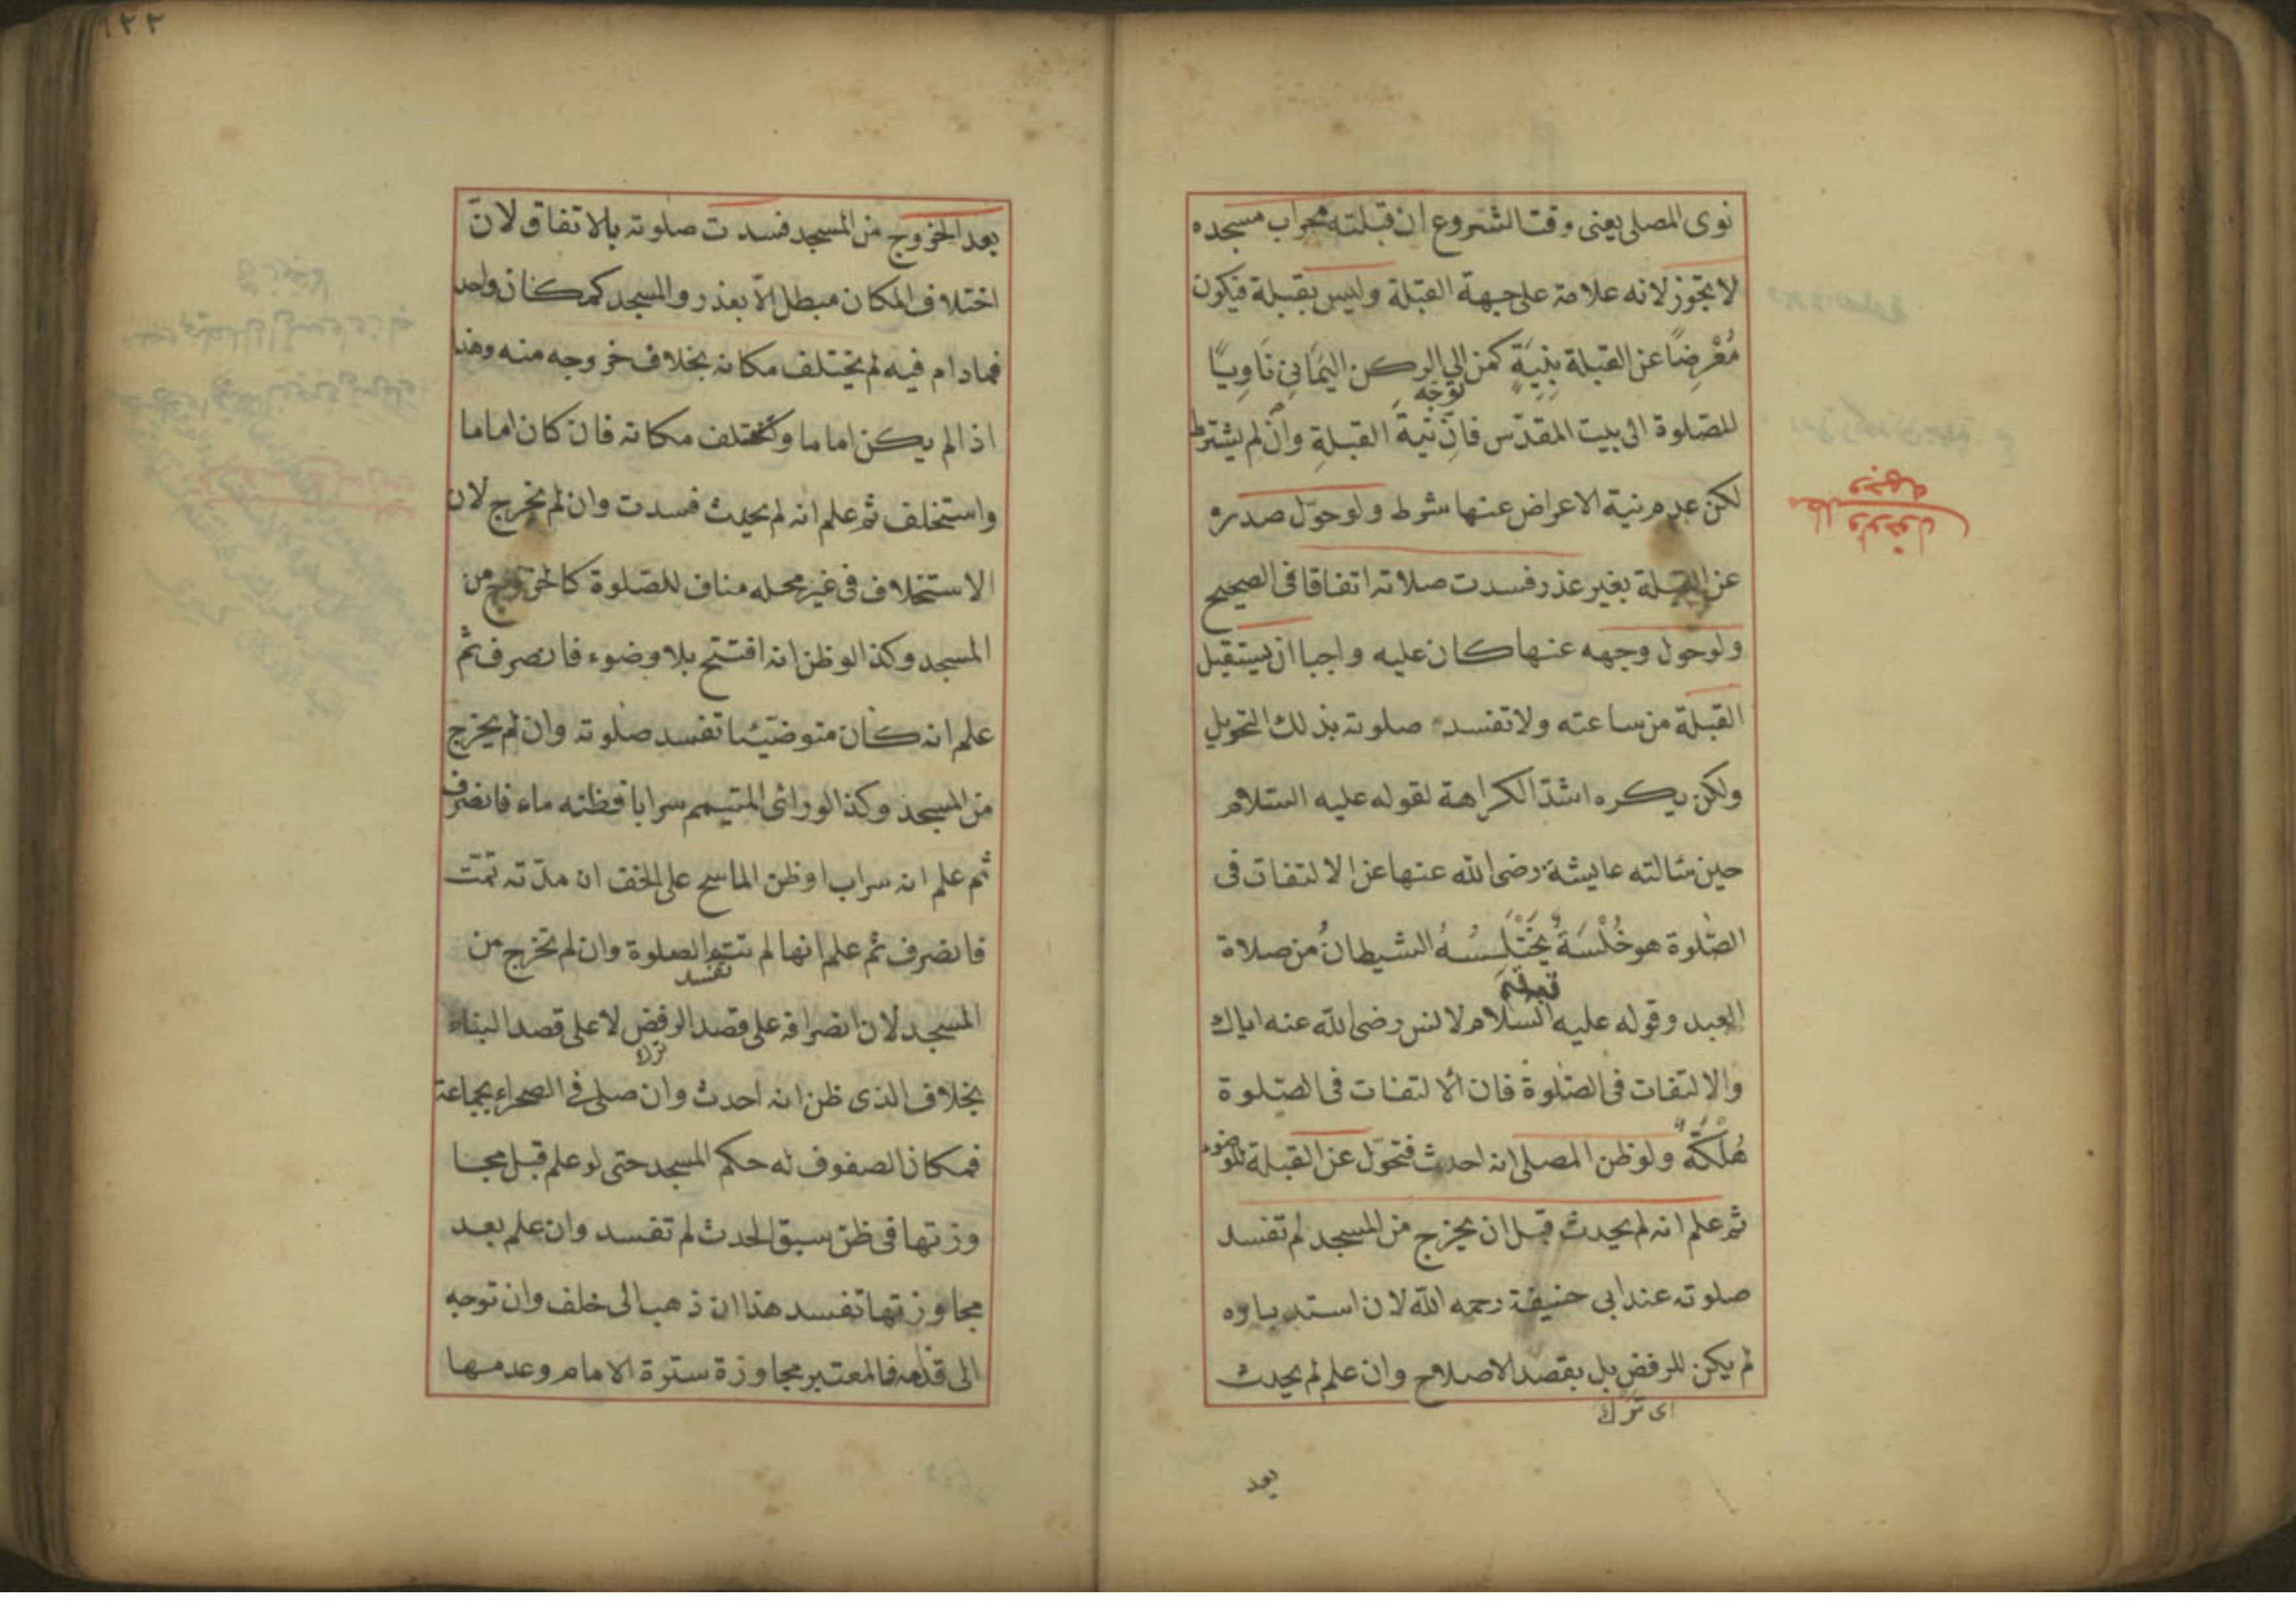 نوى المصلى يعنى وقت الشروع ان قبلته محراب مسجده
لا تجوز لانه علامة على جهة القبلة وليس بقبلة فيكون
مُعْرِضًا عن القبلة بِنِيَةٍ كمن الى الركن اليَمَانِي نَاوِيًا
توجّه
للصّلوة الى بيت المقدّس فَاِنّ نيةَ القبلةِ وانْ لم يشترط
لكن عدم نية الاعراض عنها شرط ولو حوّل صدره
عن القبلة بغير عذر فسدت صلاته اتفاقا فى الصحيح
ولو حول وجهه عنها كان عليه واجبا ان يستقبل
القبلة من ساعته ولا تفسد صلوته بذلك التحويل
ولكن يكره اشدّ الكراهة لقوله عليه السّلام
حين سالته عايشة رضى الله عنها عن الالتفات فى
الصّلوة هو خُلْسَةٌ يَخْتَلِسُهُ الشيطانُ من صلاة
العبد وقوله عليه السّلام لانس رضى الله عنه اياك
والالتفات فى الصّلوة فان الالتفات فى الصّلوة
هُلْكَةٌ ولو ظن المصلى انه احدث فتحوّل عن القبلة للوضوء
ثم علم انه لم يحدث قبل ان يخرج من المسجد لم تفسد
صلوته عند ابى حنيفة رحمه الله لان استدباره
لم يكن للرفض بل بقصد الاصلاح وان علم لم يحدث
اى ترك
بعد
ولو حول
وجهه
١٢٢
بعد الخروج من المسجد فسدت صلوته بالاتفاق لانّ
اختلاف المكان مبطل الّا بعذر والمسجد كمكان واحد
فمادام فيه لم يختلف مكانه بخلاف خروجه منه وهذا
اذا لم يكن اماما ولم يختلف مكانه فان كان اماما
واستخلف ثم علم انه لم يحدث فسدت وان لم يخرج لان
الاستخلاف فى غير محله مناف للصّلوة كالخروج من
المسجد وكذا لو ظن انه افتتح بلا وضوء فانصرف ثم
علم انه كان متوضئا تفسد صلوته وان لم يخرج
من المسجد وكذا لو رأى المتيمم سرابا فظنه ماء فانصرف
ثم علم انه سراب او ظن الماسح على الخف ان مدّته تمّت
فانصرف ثم علم انها لم تتم الصلوة وان لم تخرج من
تفسد
المسجد لان انصرافه على قصد الرفض لا على قصد البناء
ترك
بخلاف الذى ظن انه احدث وان صلى فى الصحراء بجماعة
فمكان الصفوف له حكم المسجد حتى لو علم قبل مجا
وزتها فى ظن سبق الحدث لم تفسد وان علم بعد
مجاوزتها تفسد هذا ان ذهب الى خلف وان توجه
الى قدّامه فالمعتبر مجاوزة سترة الامام وعدمها